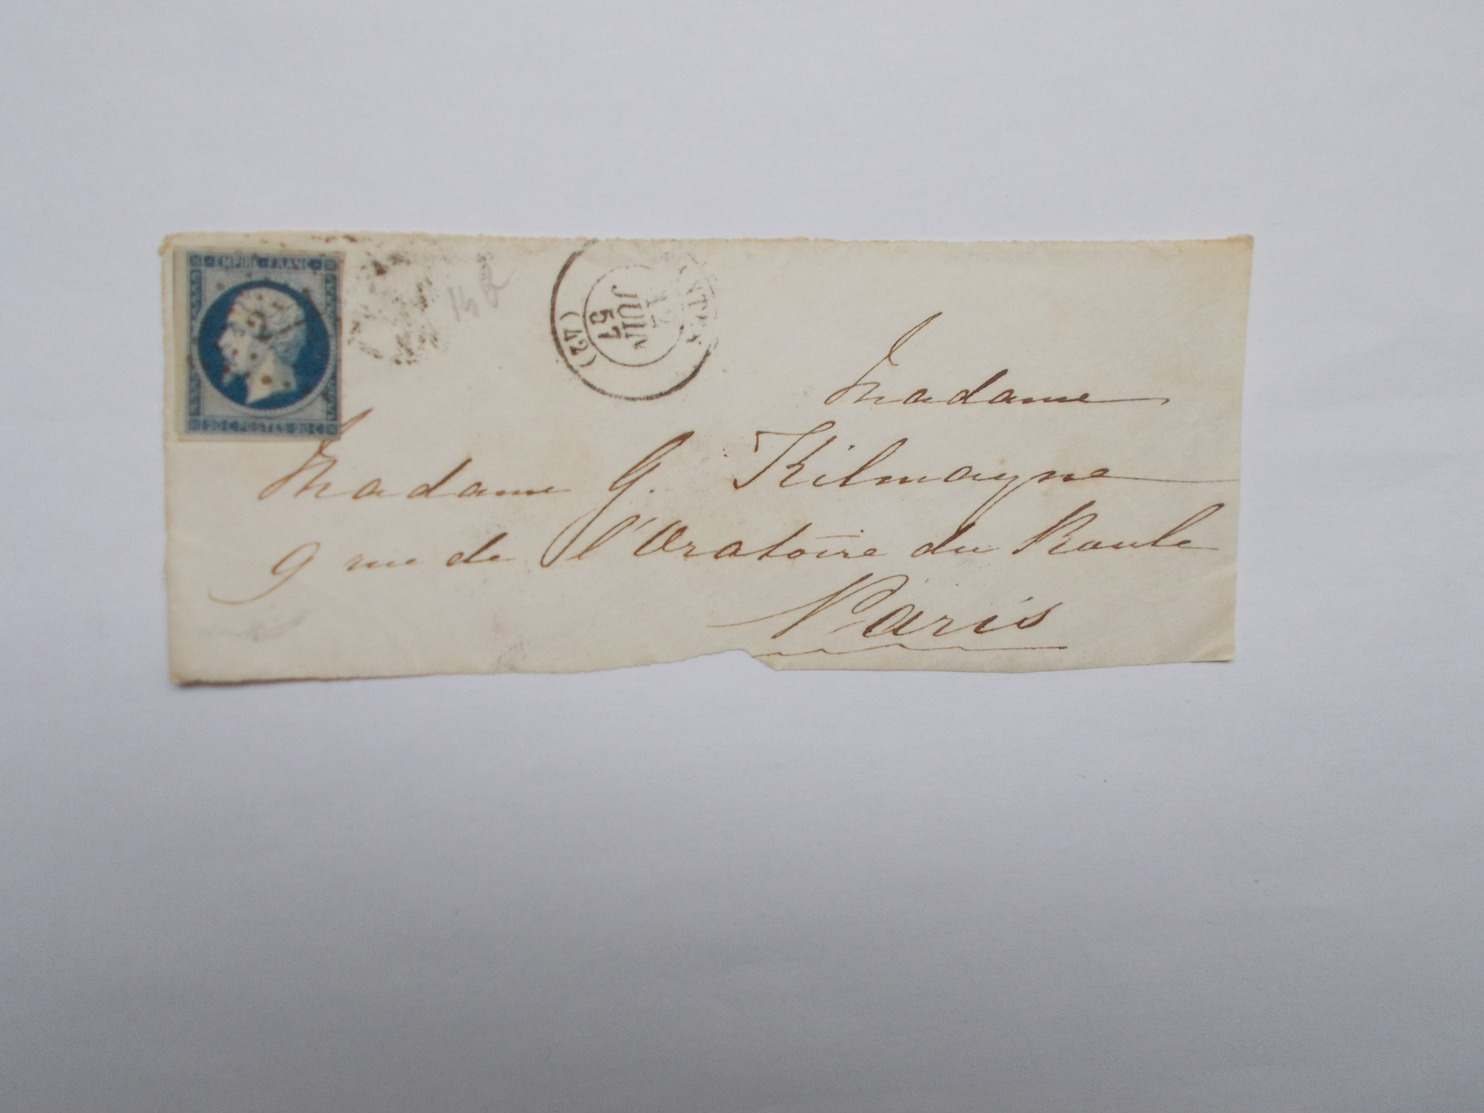 EMPIRE FRANC
20 C POSTES 20 C
JUIN
57
(42)
Madame
Madame G. Kilmayne
9 rue de l'Oratoire du Roule
Paris